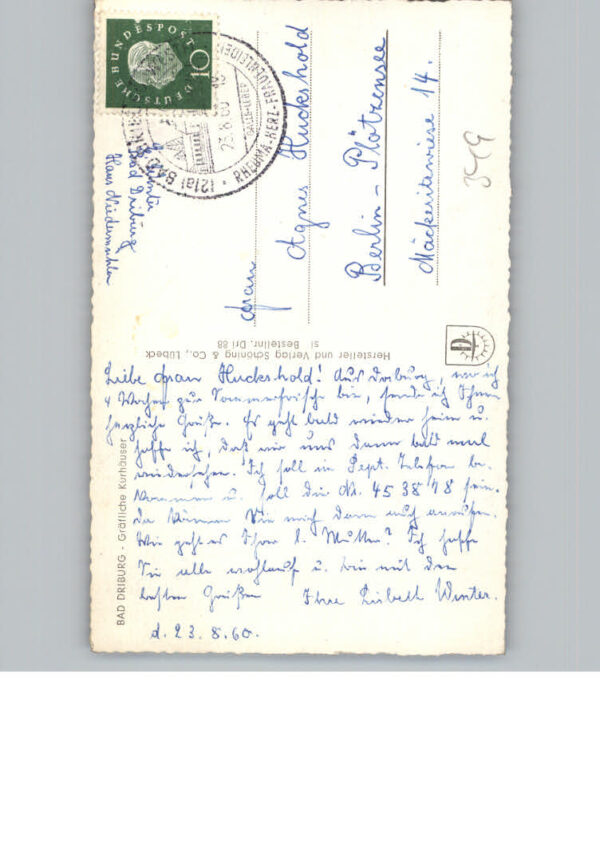 DEUTSCHE BUNDESPOST
10
(21a) BAD DRIBURG
23.8.60
GALLE-LEBER
RHEUMA-HERZ-FRAUENLEIDEN
Winter
Bad Driburg
Haus Niedermühlen
Frau
Agnes Huckshold
Berlin-Plötzensee
Mäckeritzwiese 14.
349
Hersteller und Verlag Schöning & Co., Lübeck
si Bestellnr. Dri 88
D
BAD DRIBURG - Gräfliche Kurhäuser
Liebe Frau Huckshold! Aus Driburg, wo ich
4 Wochen zur Sommerfrische bin, sende ich Ihnen
herzliche Grüße. Es geht bald wieder heim u.
hoffe ich, daß wir uns dann bald mal
wiedersehen. Ich soll im Sept. Telefon be-
kommen u. soll die Nr. 45 38 78 sein.
Da können Sie mich dann auch anrufen.
Wie geht es Ihrer l. Mutter? Ich hoffe
Sie alle wohlauf u. bin mit den
besten Grüßen Ihre Lisbeth Winter.
d. 23.8.60.